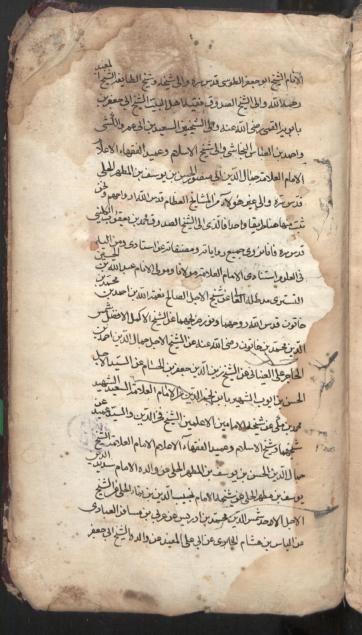 الامام الشيخ ابو جعفر الطوسي قدس سره والى شيخه وشيخ الطايفة الشيخ
عبد الله والى الشيخ الصدوق فقيه اهل البيت الشيخ ابى جعفر بن
بابويه القمي رضي الله عنه والى الشيخين السعيدين ابى عمرو الكشى
واحمد بن العباس النجاشى والى شيخ الاسلام وعميد الفقهاء الاعلام
الامام العلامة جمال الدين ابى منصور الحسن بن يوسف بن المطهر الحلى
قدس سره والى غير هؤلاء من المشايخ العظام قدس الله ارواحهم
هنا طريقا واحدا فالذى الى الشيخ الصدوق محمد بن يعقوب الكلينى
قدس سره فانا نروى جميع رواياته ومصنفاته عن استادى ومن اليه
فى العلوم استنادى الامام العلامة مولانا ومولى الانام عبد الله بن
التسترى مد ظله عن الشيخ الاجل الصالح نعمة الله بن احمد بن
خاتون قدس الله روحهما ونور ضريحهما عن الشيخ الاكمل الافضل شمس
الدين محمد بن خاتون رضى الله عنه عن الشيخ الاجل جمال الدين احمد بن
الحاج على العيناثى عن الشيخ زين الدين جعفر بن الحسام عن السيد الاجل
الحسن بن ايوب الشهير بابن نجم الدين عن الامام العلامة السعيد الشهيد
محمد بن مكى عن شيخه الامامين الاعلمين الشيخ فخر الدين والسيد عميد
شيخهما وشيخ الاسلام وعميد الفقهاء الاعلام الامام العلامة الشيخ
جمال الدين الحسن بن يوسف بن المطهر الحلى عن والده الامام سديد الدين
يوسف بن مطهر الحلى عن شيخه الامام نجيب الدين بن نما الحلى عن الشيخ
الاجل الاوحد شمس الدين محمد بن ادريس عن عربى بن مسافر العبادى
عن الياس بن هشام الحايرى عن ابى على المفيد عن والده الشيخ ابى جعفر